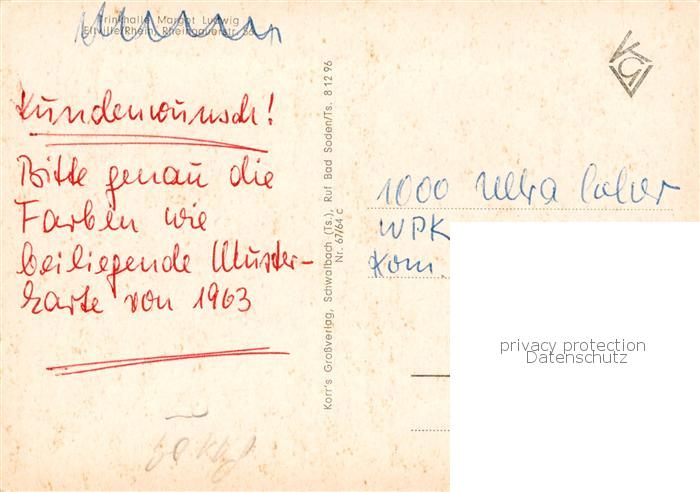 Trinkhalle Margot Ludwig
Eltville/Rhein, Rheingauerstr. 36
Kundenwunsch!
Bitte genau die
Farben wie
beiliegende Muster-
karte von 1963
Korr's Großverlag, Schwalbach (Ts.), Ruf Bad Soden/Ts. 8 12 96
Nr. 67/64 C
KGV
1000 Ultra Color
WPK
Kom.
privacy protection
Datenschutz